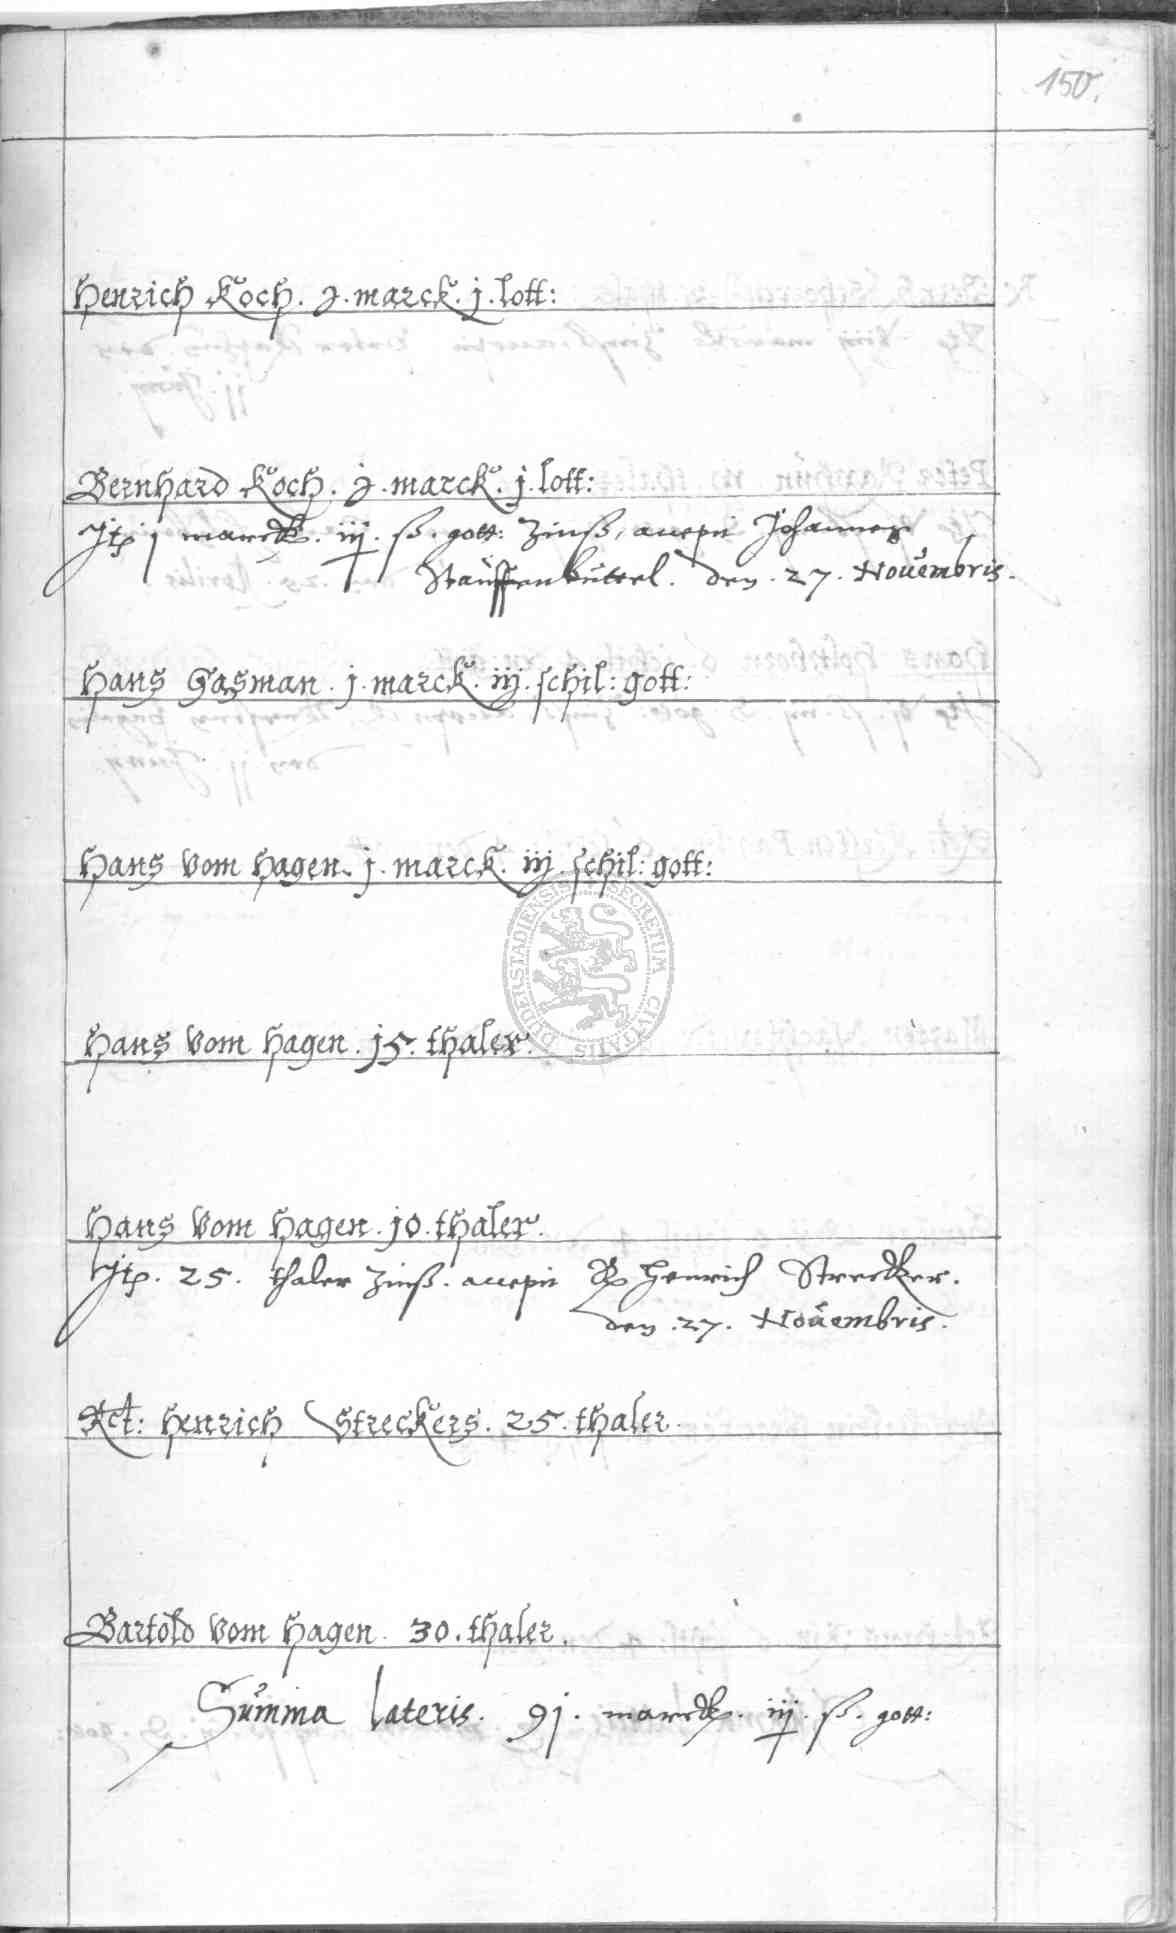 150.
Henrich Koch. 2. marck. j. lott:
Bernhard Koch. 2. marck. j. lott:
Jtp j marck. iij. ß. gott: Zinß, accepit Johannes
Stauffenbüttel. den. 27. Novembris.
Hans Gasman. j. marck. iij. schil: gott:
Hans vom Hagen. j. marck. iij. schil: gott:
Hans vom Hagen. 15. thaler.
Hans vom Hagen. 10. thaler.
Jtp. 25. thaler Zinß. accepit Henrich Strecker.
den. 27. Novembris.
Rct: Henrich Streckers. 25. thaler.
Bartold vom Hagen. 30. thaler.
Summa lateris. 91. marck. iij. ß. gott:
SECRETUM CIVITATIS DUDERSTADIENSIS